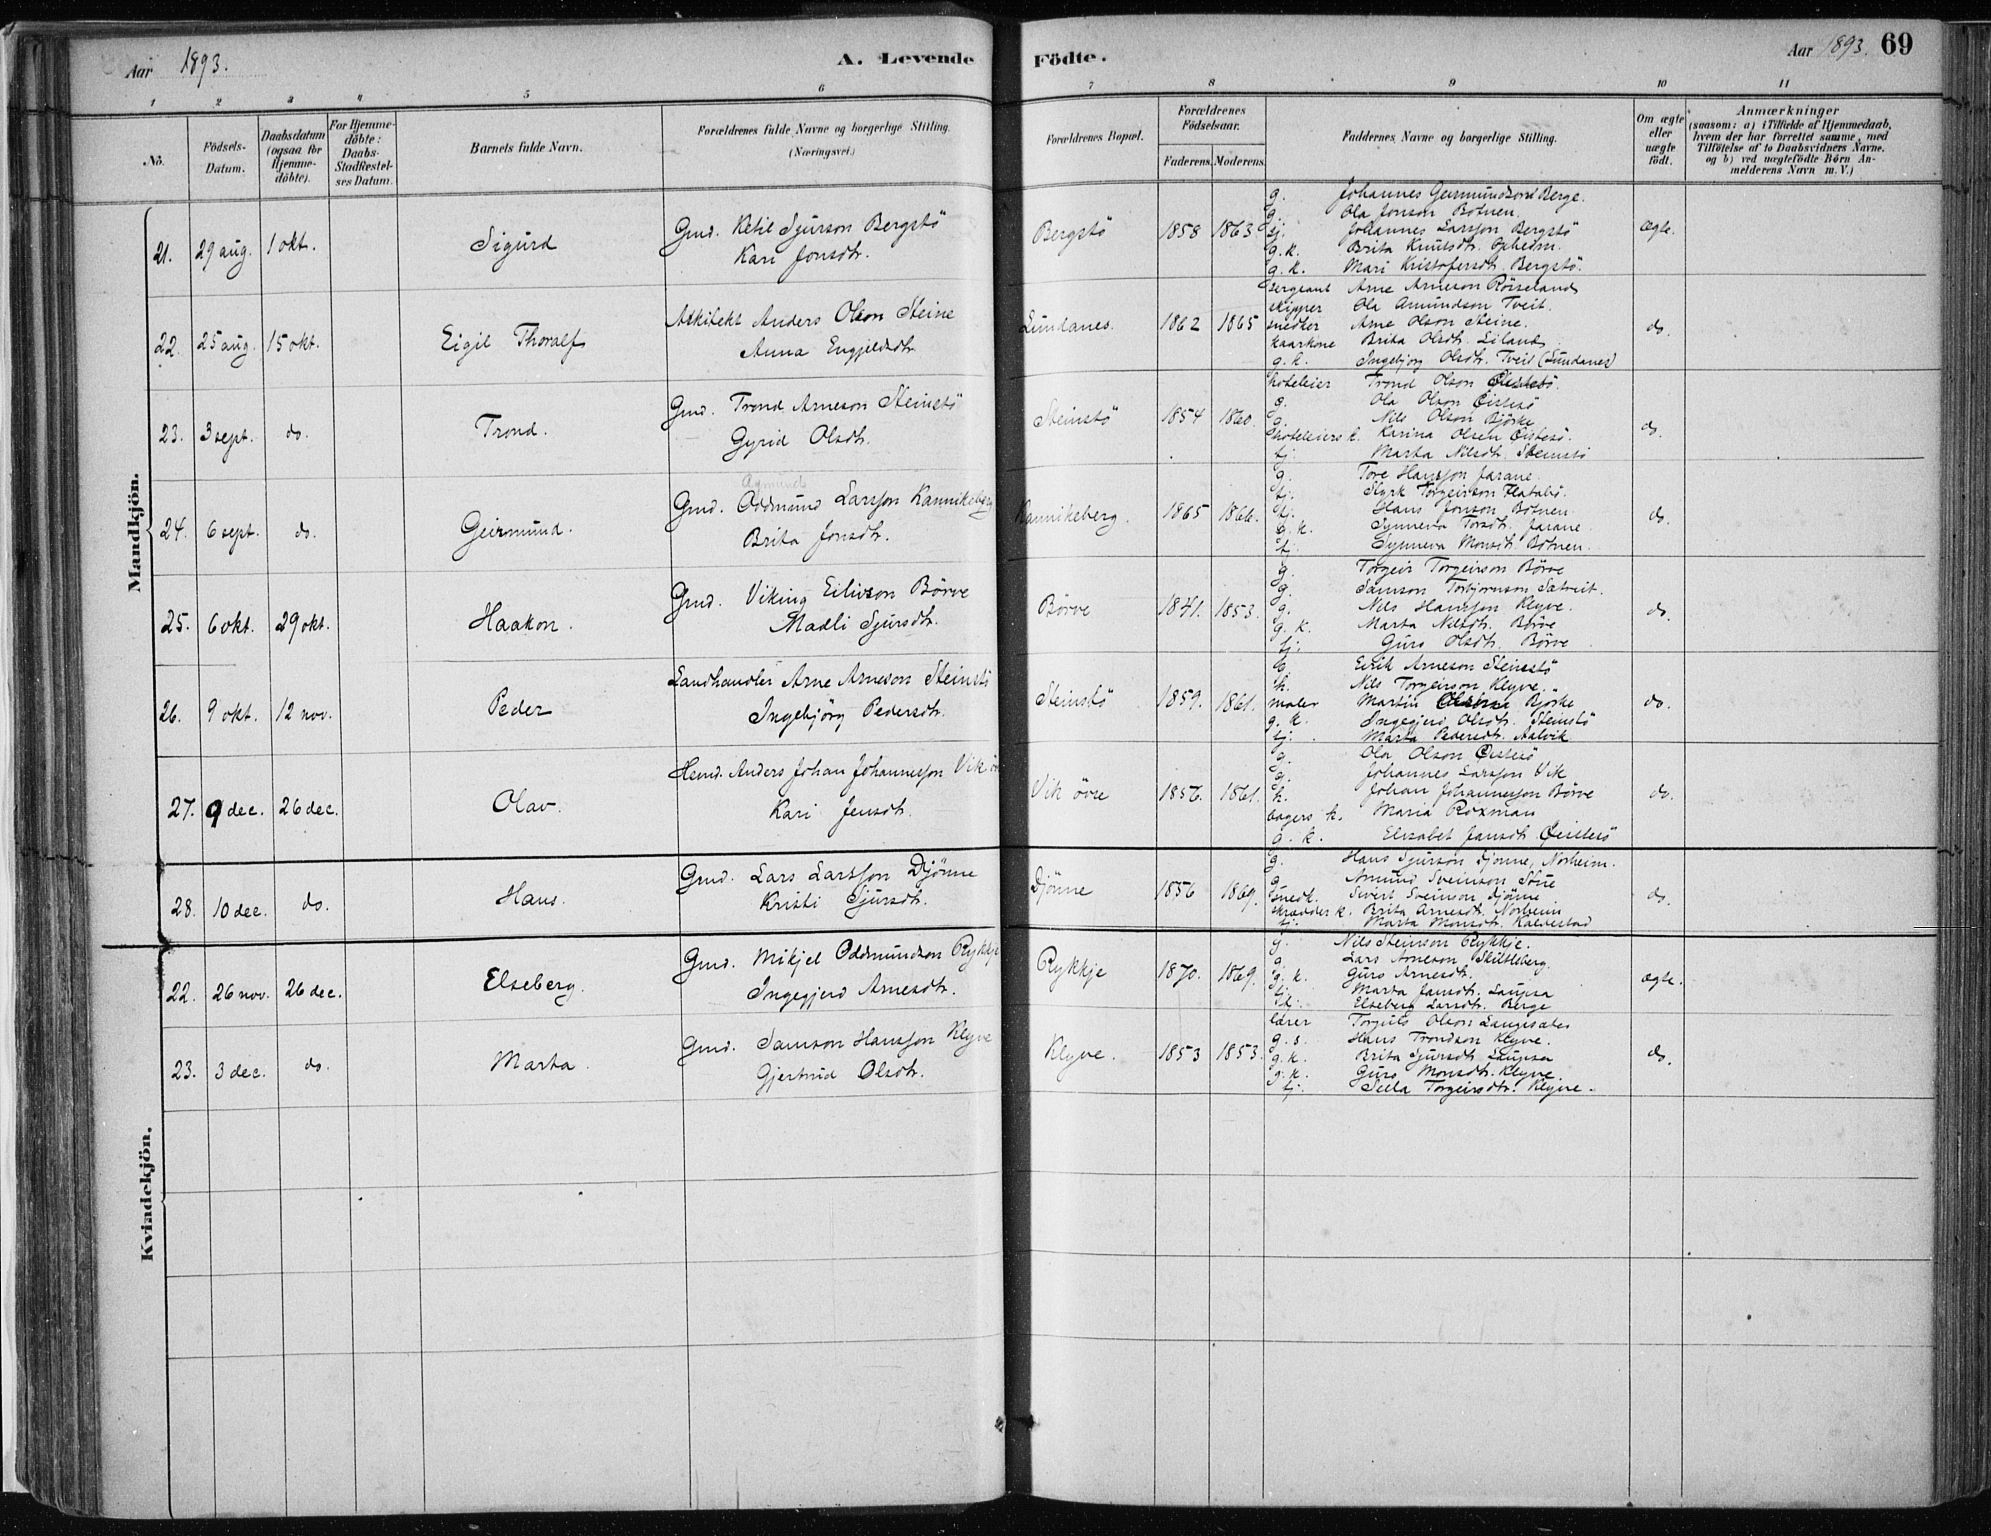 Aar 1893. A. Levende Födte. Aar 1893. 69
1 2 3 4 5 6 7 8 9 10 11
No. Födsels-Datum. Daabsdatum (ogsaa for Hjemmedöbte). For Hjemmedöbte: Daabs-Stadfæstelses Datum. Barnets fulde Navn. Forældrenes fulde Navne og borgerlige Stilling. (Næringsvei.) Forældrenes Bopæl. Forældrenes Födselsaar. Faderens. Moderens. Faddernes Navne og borgerlige Stilling. Om ægte eller uægte födt. Anmærkninger (saasom: a) i Tilfælde af Hjemmedaab, hvem der har forrettet samme, med Tilföielse af to Daabsvidners Navne, og b) ved uægtefödte Börn Anmelderens Navn m. V.)
Mandkjön.
21. 29 aug. 1 okt. Sigurd Gmd. Ketil Sjurson Bergstö
Kari Jonsdtr. Bergstö 1858 1863. ægte.
g. Johannes Geirmundson Berge.
g. Ola Jonson Botnen.
tj. Johannes Larsson Bergstö
g. k. Brita Knutsdtr. Opheim.
g. k. Mari Kristofersdtr. Bergstö.
22. 25 aug. 15 okt. Eigil Thoralf Arkitekt Anders Olson Steine
Anna Engjeldsdtr. Lundanes. 1862 1865 do.
sergeant Arne Arneson Röiseland
skipper Ola Amundson Tveit.
snedker Arne Olson Steine.
kaarkone Brita Olsdtr. Eiland
g. k. Ingebjorg Olsdtr. Tveit (Lundanes)
23. 3 sept. do. Trond. Gmd. Trond Arneson Steinstö
Gyrid Olsdtr. Steinstö 1854 1860. do.
hoteleier Trond Olson Öistesö.
Ola Olson Öistesö
g. Nils Olson Björke
hoteleiers k. Karina Olsen Öistesö.
tj. Marta Nilsdtr. Steinstö
24. 6 sept. do. Geirmund. Gmd. Oddmund Larsson Kannikeberg
Brita Jonsdtr. Kannikeberg. 1865 1866. do.
g. Tore Hansson Jarane.
tj. Styrk Torgeirson Flatabö.
tj. Hans Jonson Botnen
g. k. Synneva Torsdtr. Jarane.
tj. Synneva Monsdtr. Botnen.
25. 6 okt. 29 okt. Haakon. Gmd. Viking Eilivson Börve
Madli Sjursdtr. Börve 1841. 1853. do.
g. Torgeir Torgeirson Börve
g. Samson Torbjornson Satveit.
g. Nils Hansson Klyve.
g. k. Marta Nilsdtr. Börve
tj. Guro Olsdtr. Börve
26. 9 okt. 12 nov. Peder Landhandler Arne Arneson Steinstö
Ingebjörg Pedersdtr. Steinstö 1859. 1861. do.
Eirik Arneson Steinstö
k. Nils Torgeirson Klyve.
maler Martin Björke
g. k. Ingegjerd Olsdtr. Steinstö
tj. Marta Pedersdtr. Aalvik
27. 9 dec. 26 dec. Olav. Hemd. Anders Johan Johannesson Vik
Kari Jensdtr. Vik övre 1856. 1861. do.
g. Ola Olson Öistesö
g. Johannes Larsson Vik
k. Johan Johannesson Börve
bagers k. Maria Roxman
g. k. Elisabet Jansdtr. Öistesö
28. 10 dec. do. Hans. Gmd. Lars Larsson Djönne
Kristi Sjursdtr. Djönne 1856 1869. do.
g. Hans Sjurson Djonne, Norheim.
g. Amund Sveinson Stue
snedk. Sivert Sveinson Djönne
skrædder k. Brita Arnesdtr. Norheim
tj. Marta Monsdtr. Kaldestad
Kvindekjön.
22. 26 nov. 26 dec. Elseberg. Gmd. Mikjel Oddmundson Rykkje
Ingegjerd Arnesdtr. Rykkje 1870. 1869. ægte.
g. Nils Steinson Rykkje.
g. Lars Arneson Skiltleberg.
g. k. Guro Arnesdtr.
tj. Marta Jansdtr. Laupsa
tj. Elseberg Larsdtr. Berge
23. 3 dec. do. Marta. Gmd. Samson Hansson Klyve
Gjertrud Olsdtr. Klyve. 1853 1853. do.
lærer Torgils Olson Laugesæter
g. s. Hans Trondson Klyve.
g. k. Brita Sjursdtr. Laupsa
g. k. Guro Monsdtr. Klyve
tj. Seela Torgeirsdtr. Klyve.